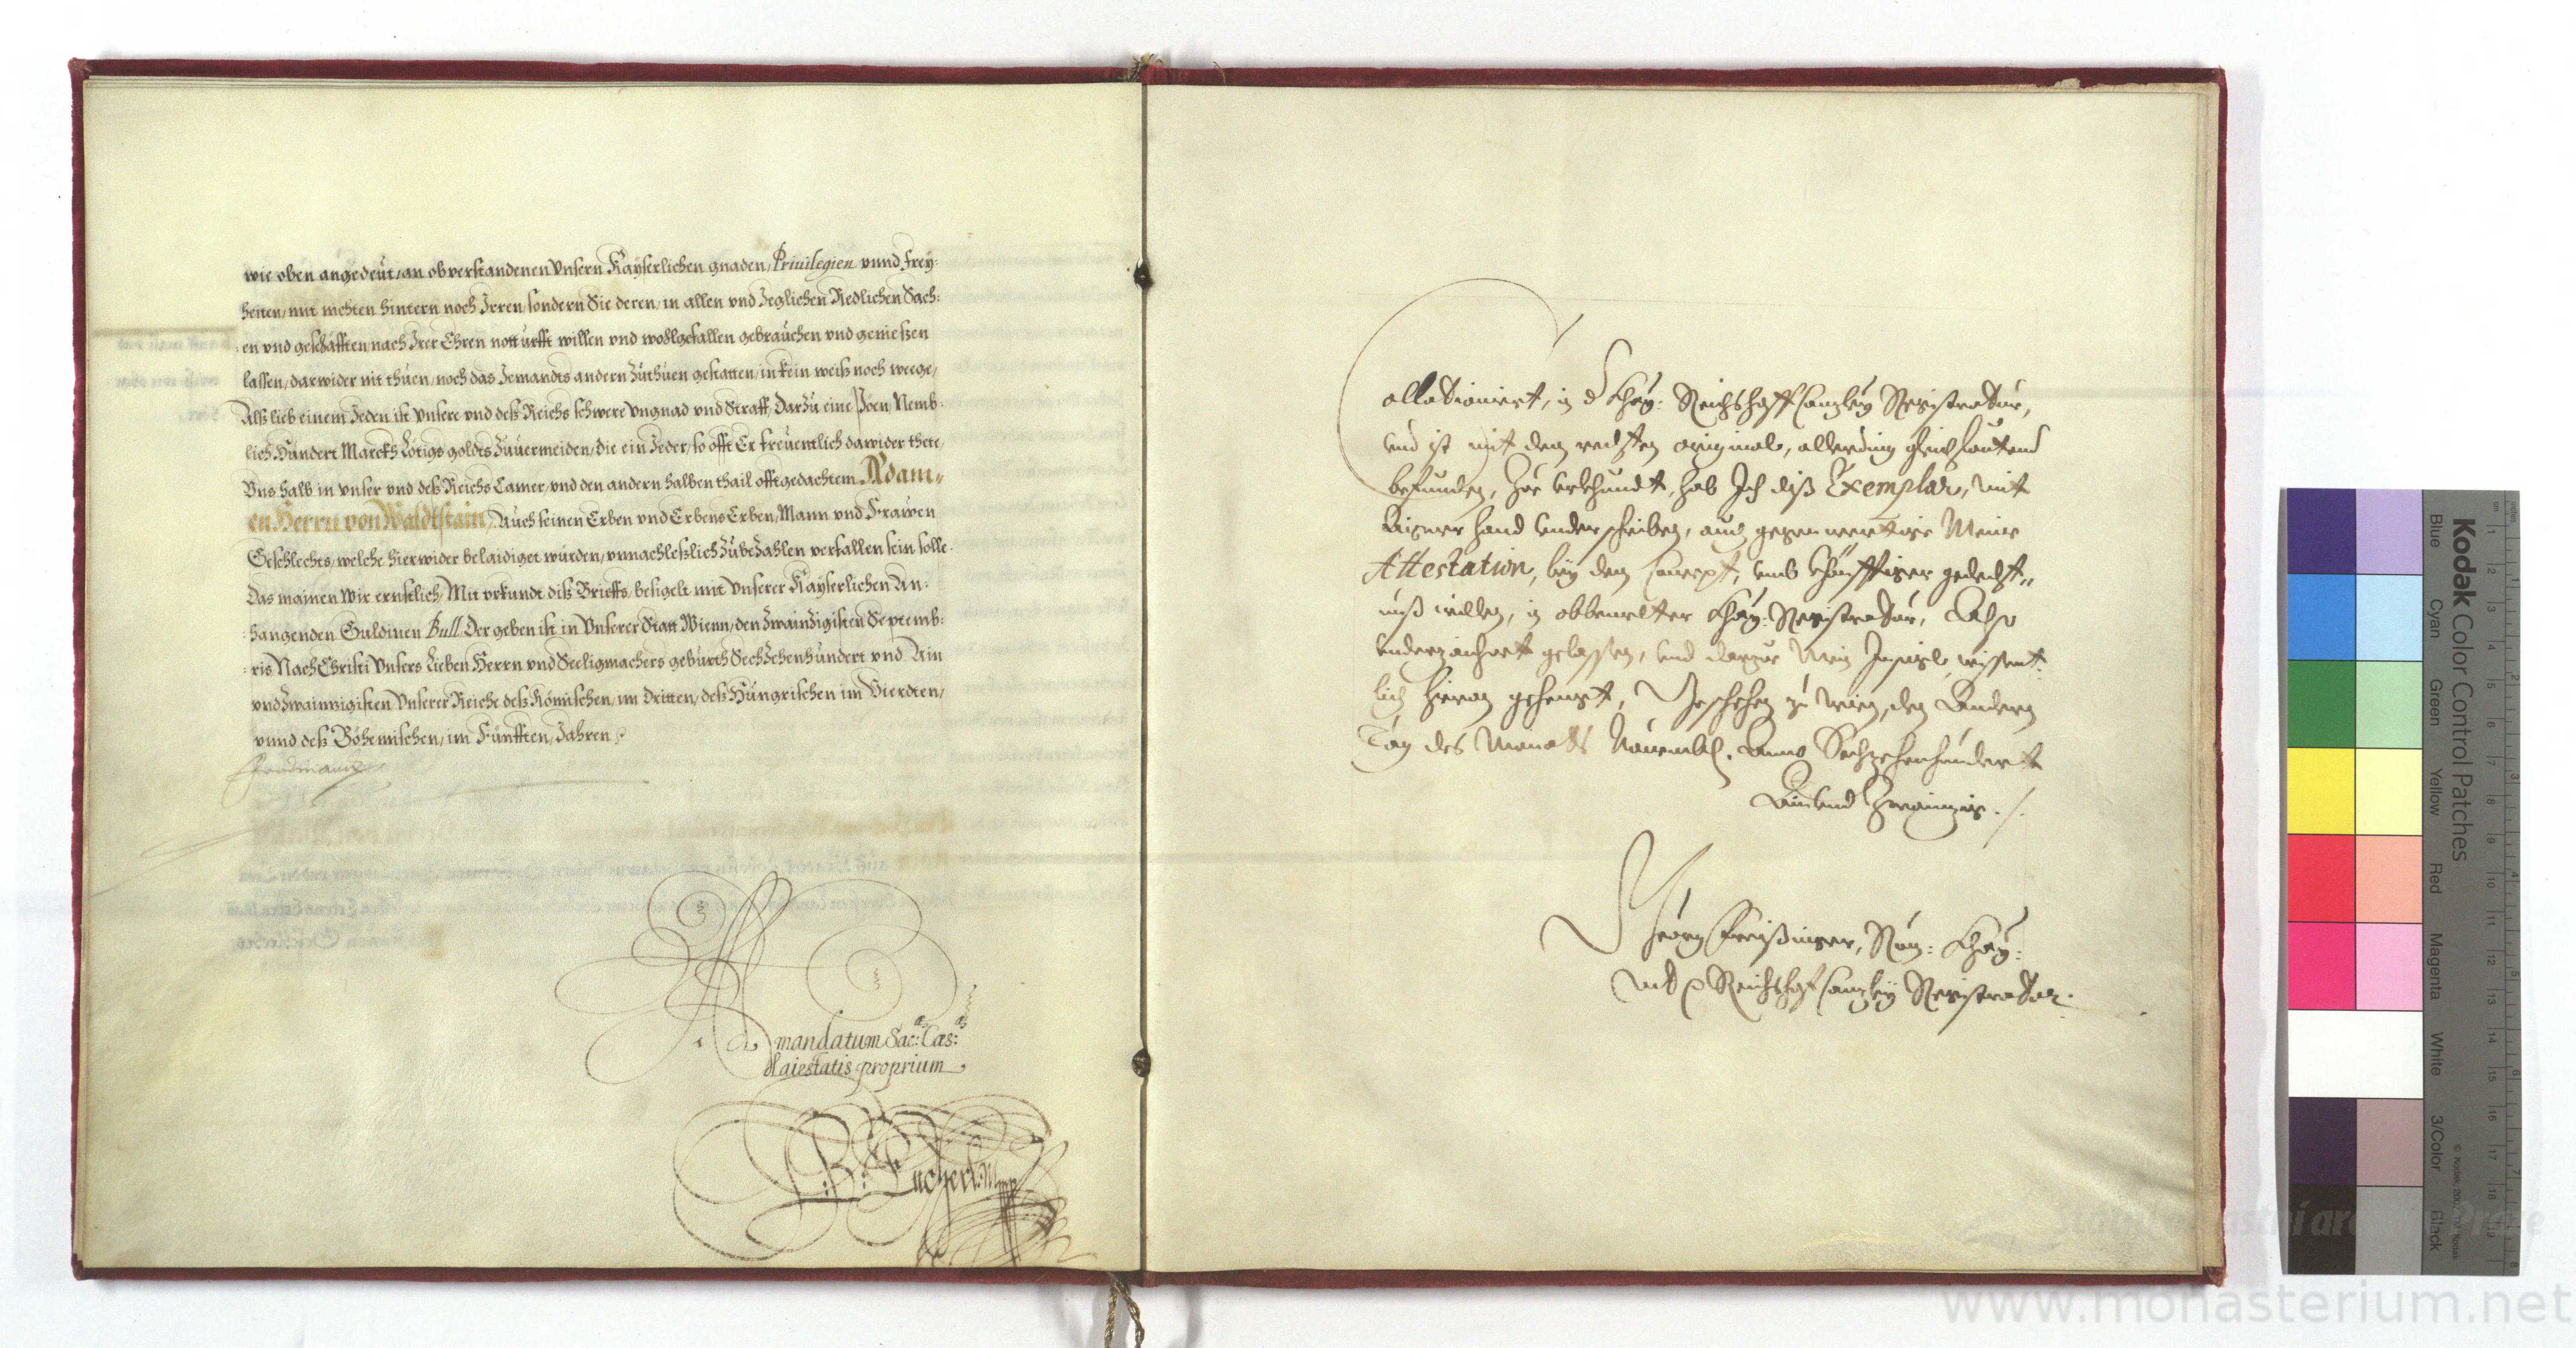 wie oben angedeüt, an obverstandenen Vnsern Kayserlichen gnaden, Priuilegien vnnd Frey:
heiten, mit nichten hintern noch Irren, sondern Sie deren, in allen vnd Jeglichen Redlichen Sach:
:en vnd geschäfften nach Irer Ehren notturfft willen vnd wollgefallen gebrauchen vnd genießen
lassen, darwider nit thuen, noch das Jemandts andern Zuthuen gestatten, in kein weiß noch weege,
Alß lieb einem Jeden ist Vnsere vnd deß Reichs schwere Vngnad vnd Straff, Darzu eine Poen, Nemb:
lich Hundert Marckh Lötigs goldts Zuuermeiden, die ein Jeder, so offt Er freuentlich darwider thete,
Vns halb in vnser vnd deß Reichs Camer, vnd den andern halben thail offtgedachtem Adam„
en Herrn von Waldtstain, Auch seinen Erben vnd Erbens Erben, Mann vnd Frawen
Geschlechts, welche hierwider belaidiget würden, vnnachleßlich Zubezahlen verfallen sein solle.
Das mainen Wir ernstlich, Mit vrkundt diß Brieffs, besigelt mit Vnserer Kayserlichen An:
:hangenden Guldinen Bull, Der geben ist in Vnserer Statt Wienn, den Zwainzigisten Septemb:
:ris Nach Christi Vnsers Lieben Herrn vnd Seeligmachers geburth Sechzehenhundert vnd Ain
vnd Zwainzigisten, Vnserer Reiche deß Römischen, im Dritten, deß Hungrischen im Vierdten,
vnnd deß Böhemischen, im Fünfften, Jahren
Ferdinand
Ad mandatum Sac: Cæs:
Maiestatis proprium
Collationiert, in d Khay: Reichshoff Canzley Registratur,
vnd ist mit dem rechten original, allerding gleich lautend
befunden, Zu vrkhundt, hab Ich diß Exemplar, mit
Aigner hand vnderschriben, auch gegenwertige Meine
Attestation, bey dem Concept, vmb khünfftiger gedecht„
nuß willen, in obbemelter Khay: Registratur, Also
gelassen, vnd darzue Mein Insigl, wissent:
lich hieran gehengt, Geschehen zu Wien, den Andern
Tag des Monats Nouemb. Anno Sechzehenhundert
Ain vnd Zwainzig.
Röm: Khay:
Mt Reichshof Canzley Registrator.
Kodak Color Control Patches
Blue Cyan Green Yellow Red Magenta White 3/Color Black
www.monasterium.net